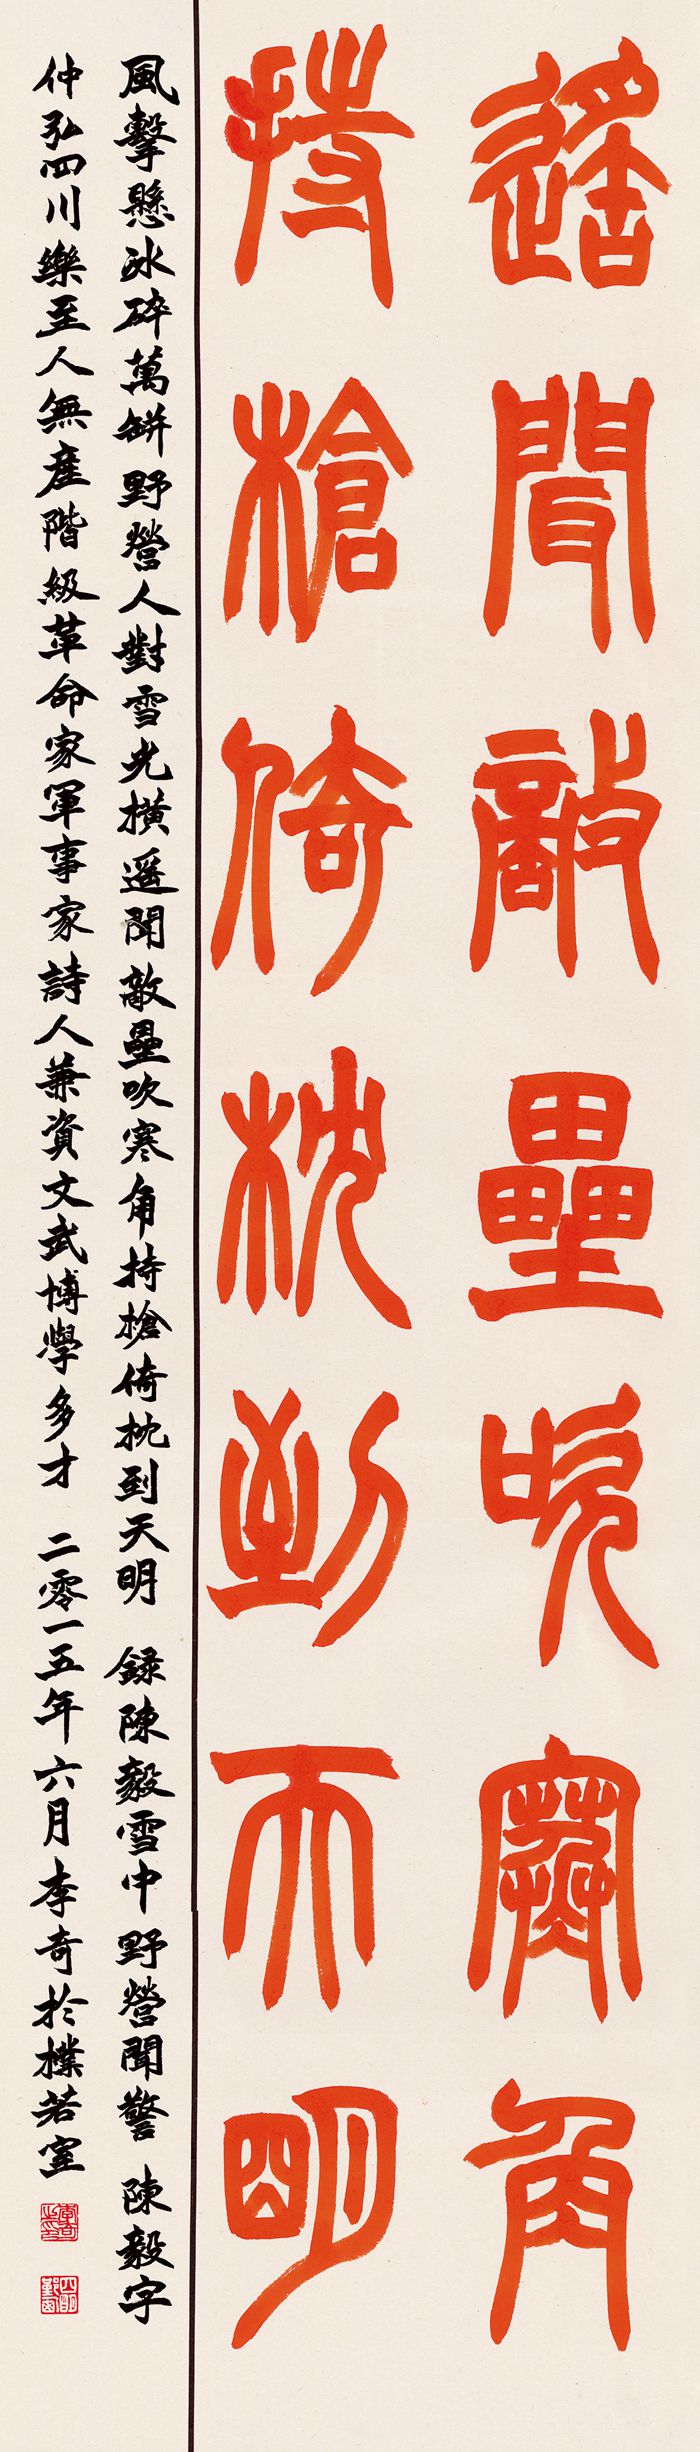 遥聞敵壘吹寒角
持槍倚枕到天明
風擊懸冰碎萬瓶野營人對雪光橫遥聞敵壘吹寒角持槍倚枕到天明 録陳毅雪中野營聞警 陳毅字
仲弘四川樂至人無産階級革命家軍事家詩人兼資文武博學多才 二零一五年六月李奇於樸若室